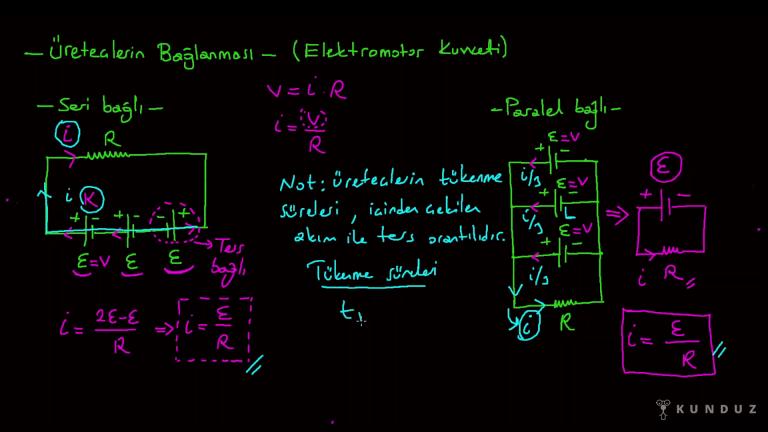 — Üreteçlerin Bağlanması — (Elektromotor Kuvveti)
— Seri bağlı —
i
R
i K
+ - + - - +
ε=V ε ε
Ters bağlı
i = 2ε-ε / R => i = ε / R
V = i . R
i = V / R
Not: Üreteçlerin tükenme
süreleri, içinden çekilen
akım ile ters orantılıdır.
Tükenme süreleri
t
— Paralel bağlı —
ε=V
+ -
i/3
ε=V
+ -
i/3 L
ε=V
+ -
i/3
i R
=>
ε
+ -
i R
i = ε / R
KUNDUZ